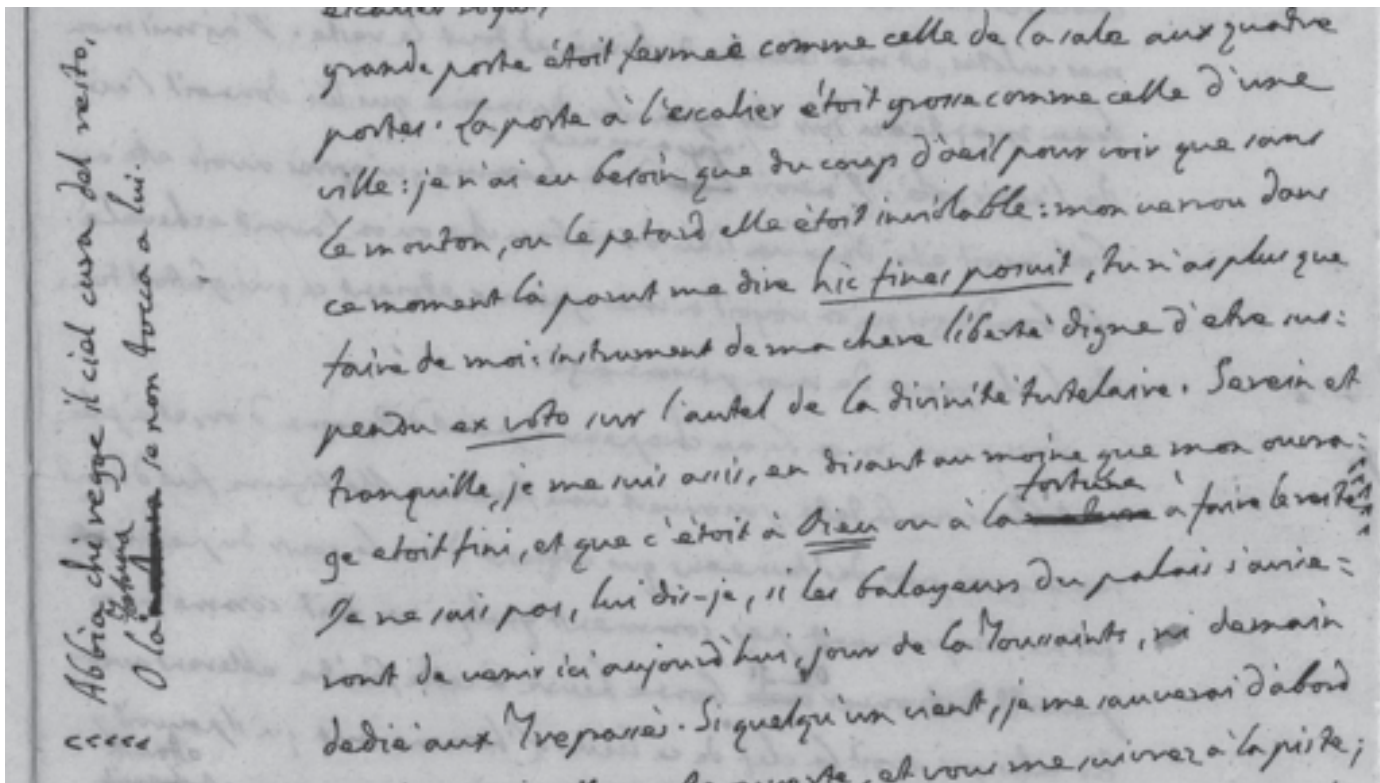 escalier royal
grande porte étoit fermeè comme celle de la sale aux quatre
portes. La porte à l'escalier étoit grosse comme celle d'une
ville: je n'ai eu besoin que du coup d'oeil pour voir que sans
le mouton, ou le petard elle étoit inviolable: mon verrou dans
ce moment là parut me dire hic fines posuit, tu n'as plus que
faire de moi: instrument de ma chere liberté digne d'etre sus:
pendu ex voto sur l'autel de la divinité tutelaire. Serein et
tranquille, je me suis assis, en disant au moine que mon ouvra:
fortune
ge etoit fini, et que c'étoit à Dieu ou à la à faire le reste
Je ne sais pas, lui dis-je, si les balayeurs du palais s'avise=
ront de venir ici aujourd'hui, jour de la Toussaints, ni demain
dedié aux Trepassés. Si quelqu'un vient, je me sauverai d'abord
et vous me suivrez à la piste;
Abbia chi regge il ciel cura del resto,
fortuna
O la se non tocca a lui.